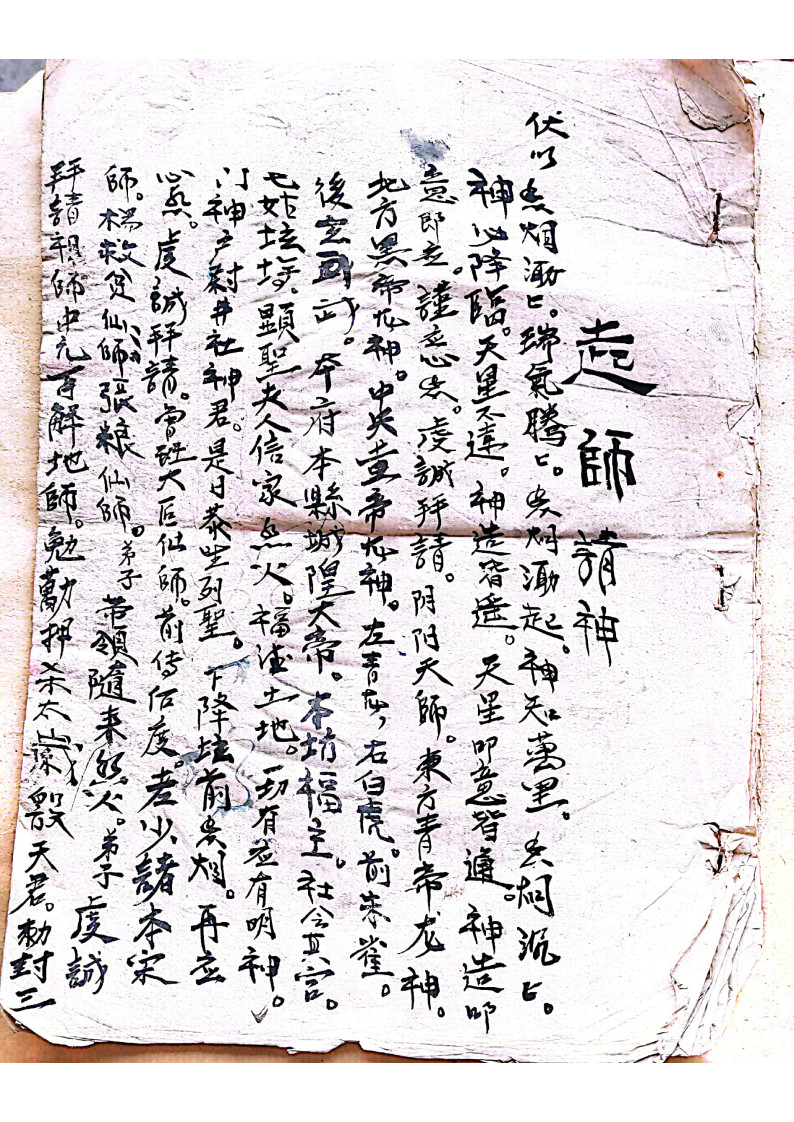 起師請神
伏以香烟瀜〻。瑞氣騰〻。香烟瀜起。神知萬里。香烟沉〻。
神必降臨。天星不遠。神造皆遥。天星叩意皆通。神造叩
意即至。謹焚心香。虔誠拜請。阴阳天師。東方青帝龙神。
北方黑帝龙神。中央黄帝龙神。左青龙，右白虎。前朱雀。
後玄武。本府本縣城隍大帝。本坊福主。社令真官。
七姑坛塲顯聖夫人信家香火。福德土地。一切有应有明神。
门神户尉井社神君。是日恭迎列聖。下降坛前香烟。再焚
心香。虔誠拜請。曾大巨仙師。前傳后度。老少諸本宗
師。楊救贫仙師張粮仙師。弟子帶領隨来香火。弟子虔誠
拜請祖師中元百解地師。勉勸押杀太歲殷天君。勅封三